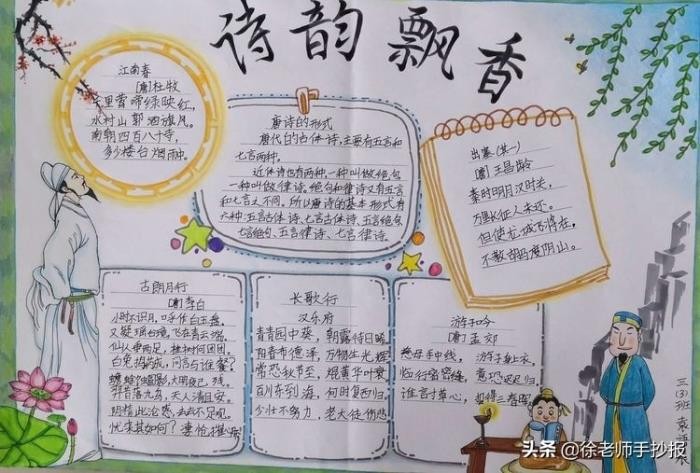 诗韵飘香
江南春
[唐]杜牧
千里莺啼绿映红,
水村山郭酒旗风。
南朝四百八十寺,
多少楼台烟雨中。
唐诗的形式
唐代的古体诗,主要有五言和
七言两种。
近体诗也有两种,一种叫做绝句
一种叫做律诗。绝句和律诗又有五言
和七言之不同。所以唐诗的基本形式有
六种:五言古体诗、七言古体诗、五言绝句、
七言绝句、五言律诗、七言律诗。
出塞(其一)
[唐]王昌龄
秦时明月汉时关,
万里长征人未还。
但使龙城飞将在,
不教胡马度阴山。
古朗月行
[唐]李白
小时不识月,呼作白玉盘。
又疑瑶台镜,飞在青云端。
仙人垂两足,桂树何团团。
白兔捣药成,问言与谁餐?
蟾蜍蚀圆影,大明夜已残。
羿昔落九乌,天人清且安。
阴精此沦惑,去去不足观。
忧来其如何?凄怆摧
长歌行
汉乐府
青青园中葵,朝露待日晞。
阳春布德泽,万物生光辉。
常恐秋节至,焜黄华叶衰。
百川东到海,何时复西归。
少壮不努力,老大徒伤悲
游子吟
[唐]孟郊
慈母手中线,游子身上衣。
临行密密缝,意恐迟迟归。
谁言寸草心,报得三春晖。
三(3)班
袁
头条 @徐老师手抄报